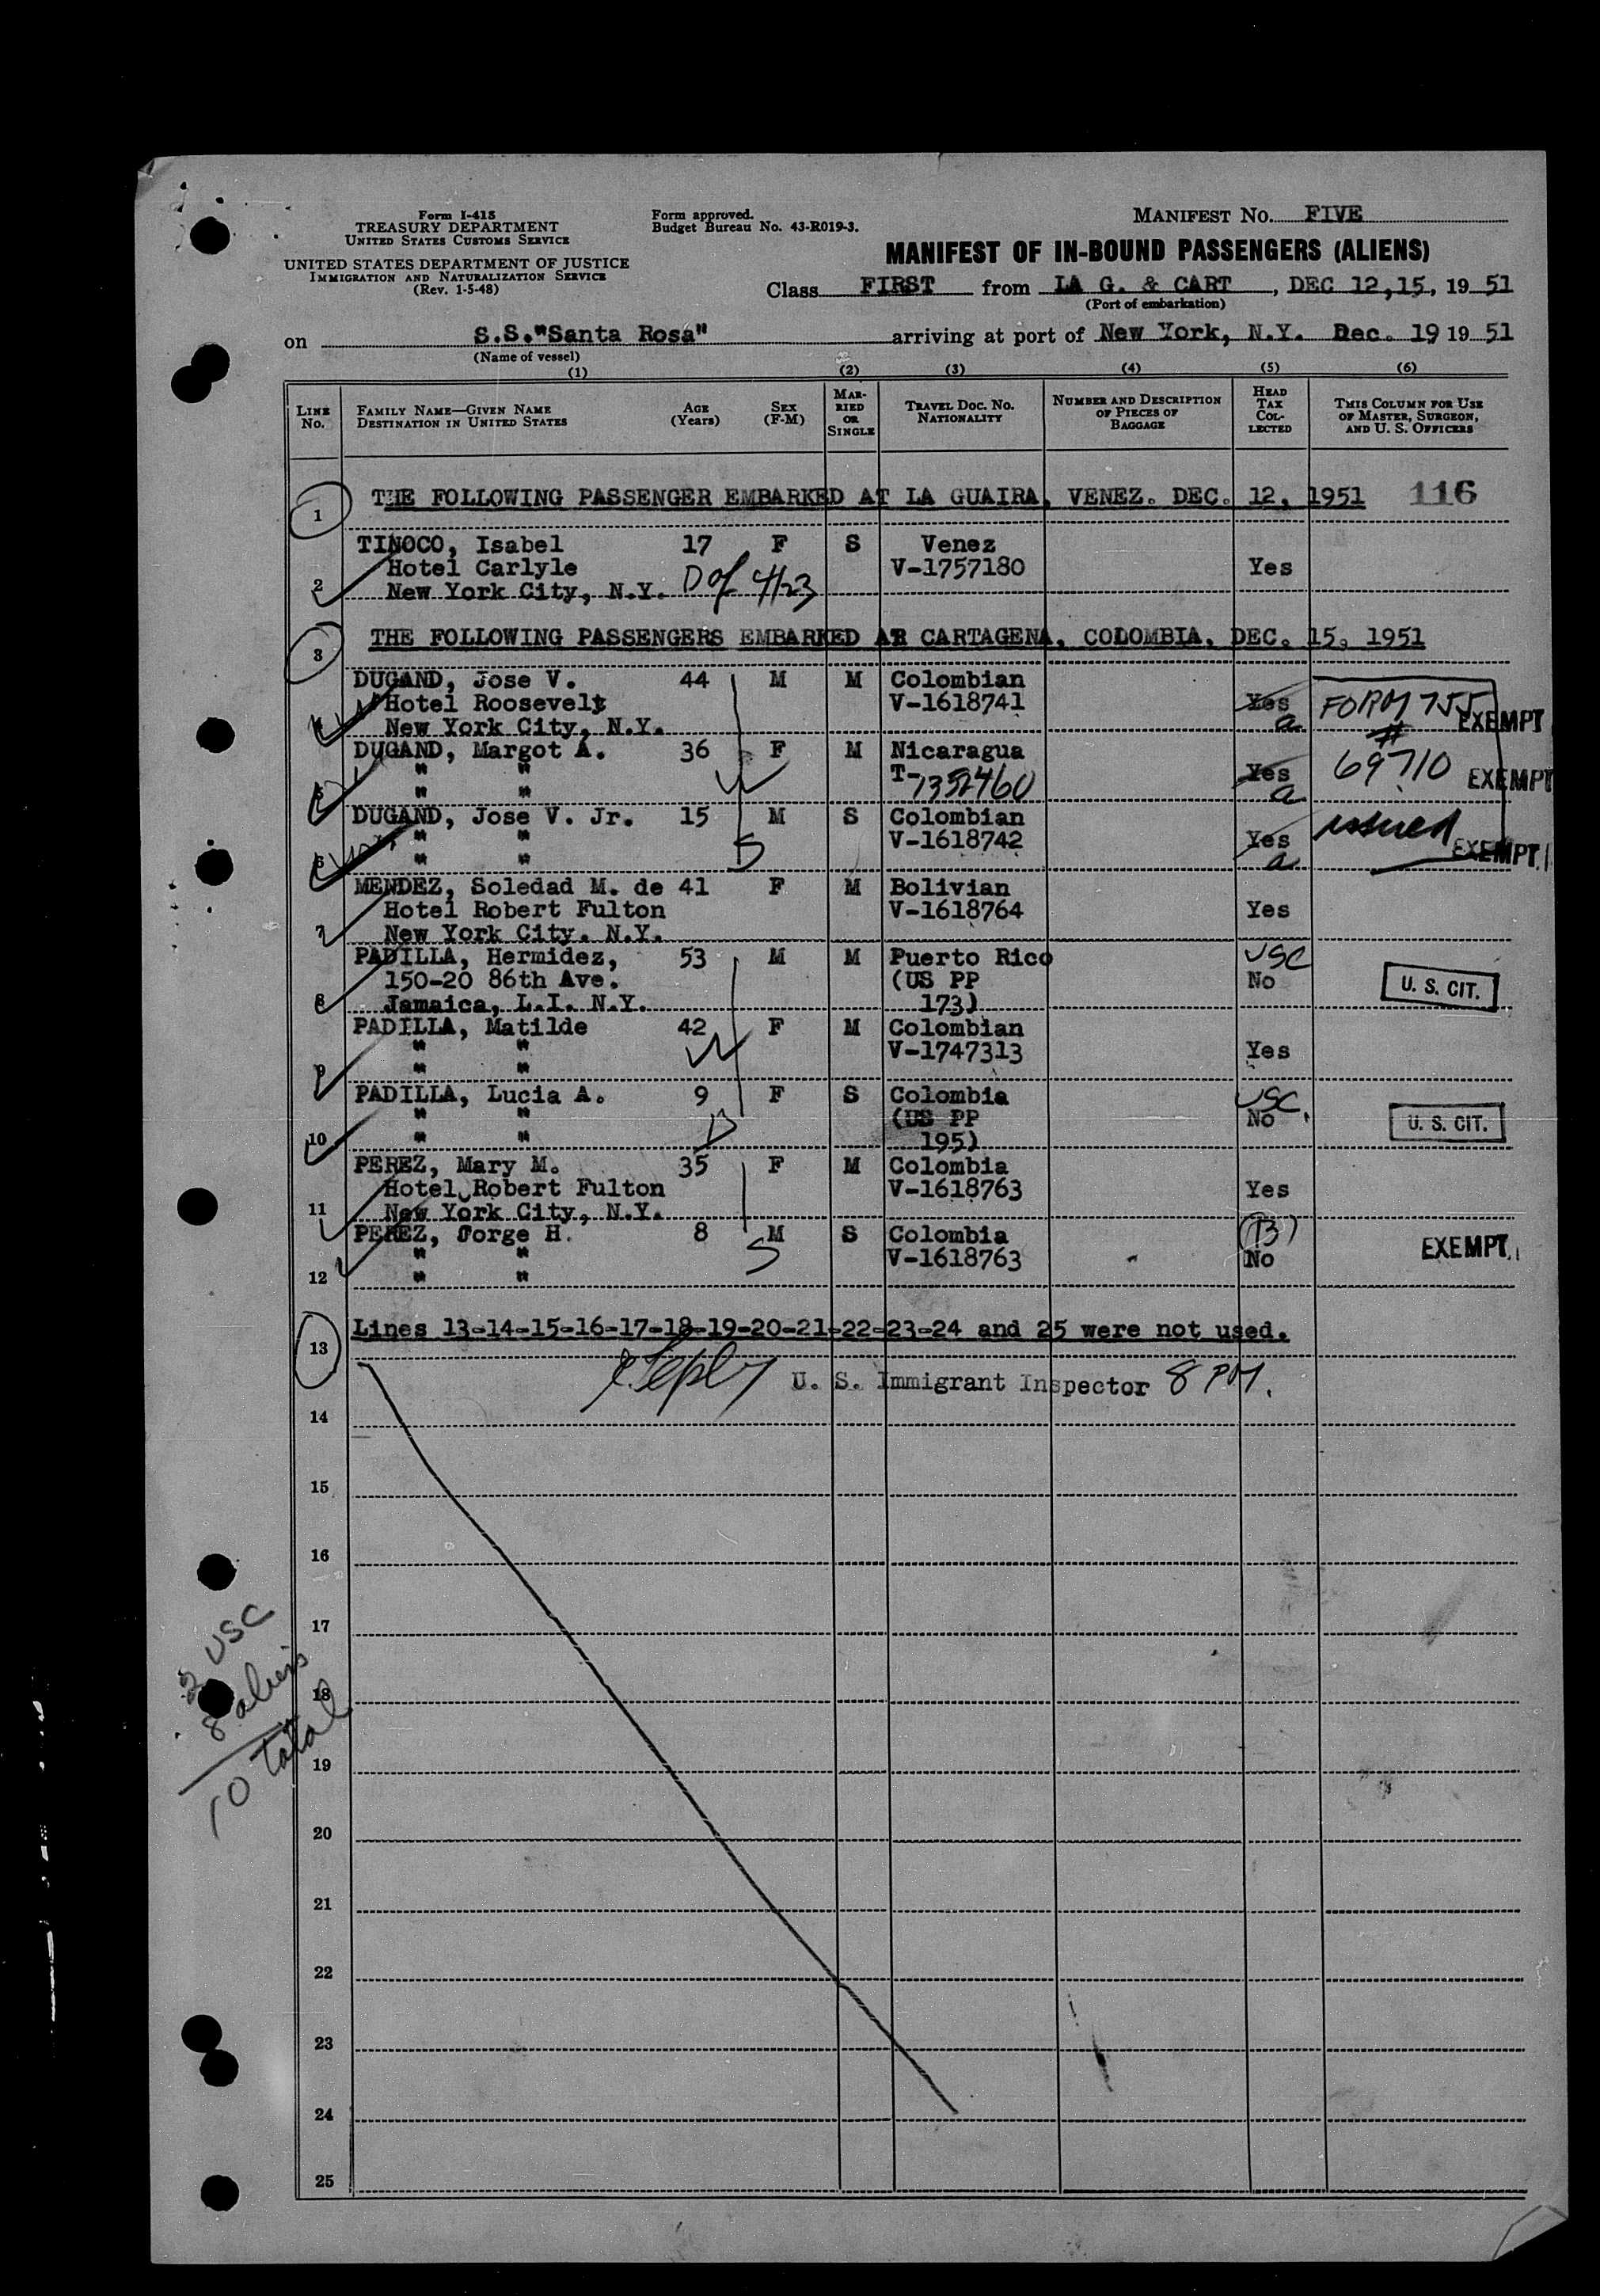 Form I-415
TREASURY DEPARTMENT
UNITED STATES CUSTOMS SERVICE
UNITED STATES DEPARTMENT OF JUSTICE
IMMIGRATION AND NATURALIZATION SERVICE
(Rev. 1-5-48)
Form approved.
Budget Bureau No. 43-R019-3.
MANIFEST NO. FIVE
MANIFEST OF IN-BOUND PASSENGERS (ALIENS)
Class FIRST from LA G. & CART, DEC 12,15, 19 51
(Port of embarkation)
on S.S."Santa Rosa" arriving at port of New York, N.Y. Dec. 19 19 51
(Name of vessel)
(1) (2) (3) (4) (5) (6)
LINE No.
FAMILY NAME—GIVEN NAME
DESTINATION IN UNITED STATES
AGE
(Years)
SEX
(F-M)
MARRIED OR SINGLE
TRAVEL DOC. NO.
NATIONALITY
NUMBER AND DESCRIPTION
OF PIECES OF
BAGGAGE
HEAD TAX COLLECTED
THIS COLUMN FOR USE
OF MASTER, SURGEON,
AND U. S. OFFICERS
1 THE FOLLOWING PASSENGER EMBARKED AT LA GUAIRA, VENEZ. DEC. 12, 1951 116
TINOCO, Isabel 17 F S Venez
Hotel Carlyle V-1757180 Yes
2 New York City, N.Y.
3 THE FOLLOWING PASSENGERS EMBARKED AT CARTAGENA, COLOMBIA, DEC. 15, 1951
DUGAND, Jose V. 44 M M Colombian
Hotel Roosevelt V-1618741 Yes FORM 755 EXEMPT
4 New York City, N.Y. a #
DUGAND, Margot A. 36 F M Nicaragua
" " T-7352460 Yes 69710 EXEMPT
5 " " a
DUGAND, Jose V. Jr. 15 M S Colombian
" " V-1618742 Yes issued EXEMPT
6 " " S a
MENDEZ, Soledad M. de 41 F M Bolivian
Hotel Robert Fulton V-1618764 Yes
7 New York City. N.Y.
PADILLA, Hermidez, 53 M M Puerto Rico USC
150-20 86th Ave. (US PP No U. S. CIT.
8 Jamaica, L.I. N.Y. 173)
PADILLA, Matilde 42 F M Colombian
" " V-1747313 Yes
9 " "
PADILLA, Lucia A. 9 F S Colombia USC.
" " (US PP No U. S. CIT.
10 " " 195)
PEREZ, Mary M. 35 F M Colombia
Hotel Robert Fulton V-1618763 Yes
11 New York City, N.Y.
PEREZ, Jorge H. 8 M S Colombia
" " S V-1618763 No EXEMPT
12 " "
13 Lines 13-14-15-16-17-18-19-20-21-22-23-24 and 25 were not used.
U. S. Immigrant Inspector 8 PM.
14
15
16
17
2 USC
8 aliens
10 total
18
19
20
21
22
23
24
25